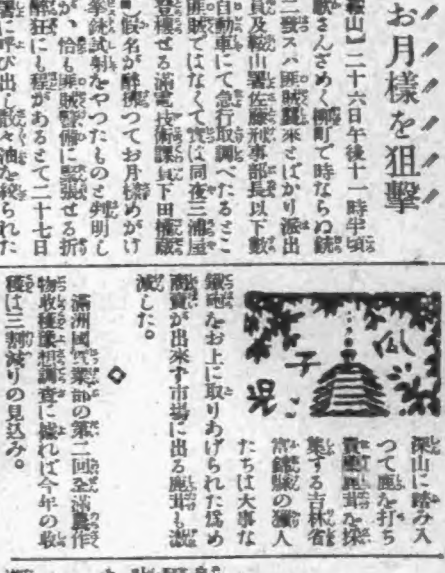 お月様を狙擊
鞍山】二十六日午後十一時半頃
さんざめく柳町で時ならぬ銃
二發スハ匪賊襲來とばかり派出
員及鞍山署佐藤刑事部長以下數
自動車にて急行取調べたるとこ
匪賊ではなくて實は同夜三浦屋
登樓せる滿電技術課員下田
假名が醉拂つてお月樣めがけ
拳銃試射をやつたものと判明し
が、恰も匪賊警備に緊張せる折
醉狂にも程があるとて二十七日
署に呼び出し散々油を絞られた
瓜子児
深山に踏み入
つて鹿を打ち
貴重鹿茸を採
集する吉林省
常縣の獵人
たちは大事な
鐵砲をお上に取りあげられた爲め
商賣が出來ず市場に出る鹿茸も激
減した。
◇
滿洲國實業部の第二回全滿農作
物收穫豫想調査に據れば今年の收
穫は三割減りの見込み。